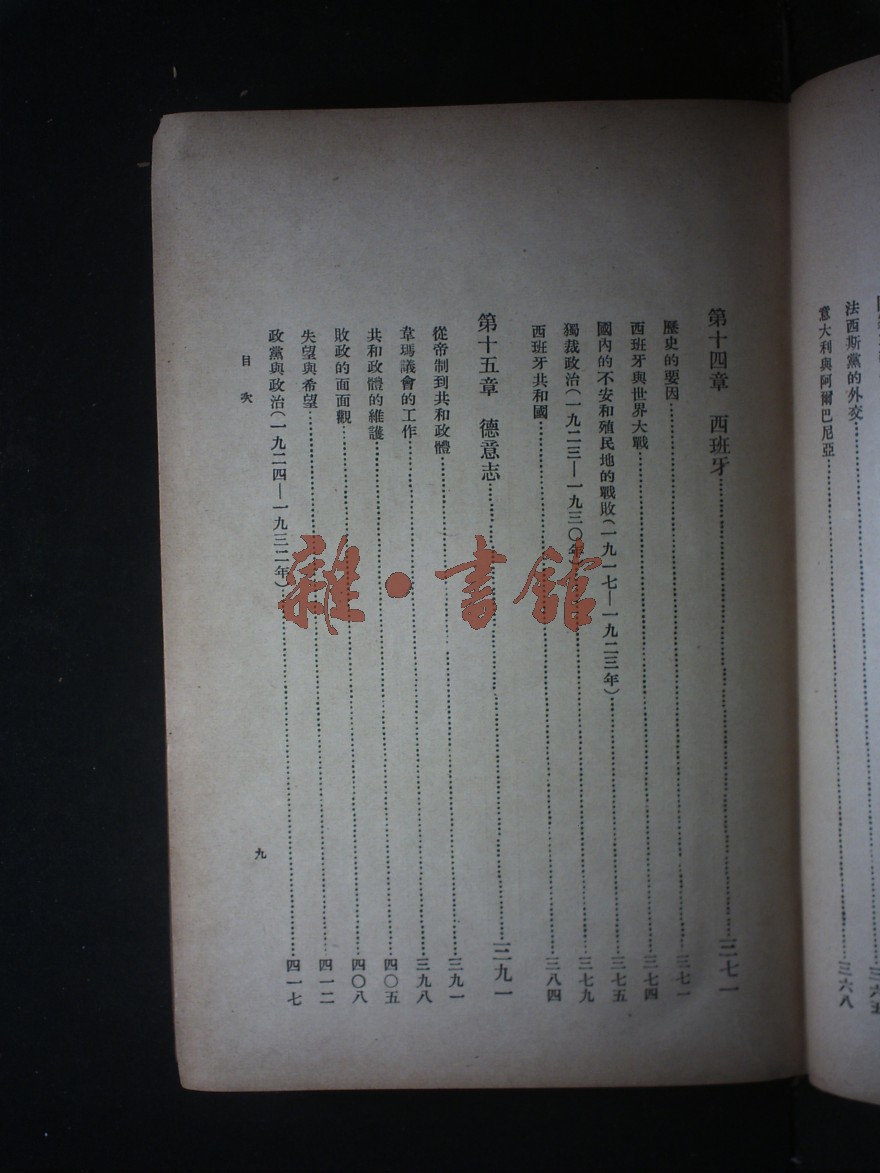 法西斯黨的外交……三六五
意大利與阿爾巴尼亞……三六八
第十四章 西班牙……三七一
歷史的要因……三七一
西班牙與世界大戰……三七四
國內的不安和殖民地的戰敗(一九一七—一九二三年)……三七五
獨裁政治(一九二三—一九三〇年……三七九
西班牙共和國……三八四
第十五章 德意志……三九一
從帝制到共和政體……三九一
韋瑪議會的工作……三九八
共和政體的維護……四〇五
敗政的面面觀……四〇八
失望與希望……四一二
政黨與政治(一九二四—一九三二年)……四一七
目次
九
雜·書館